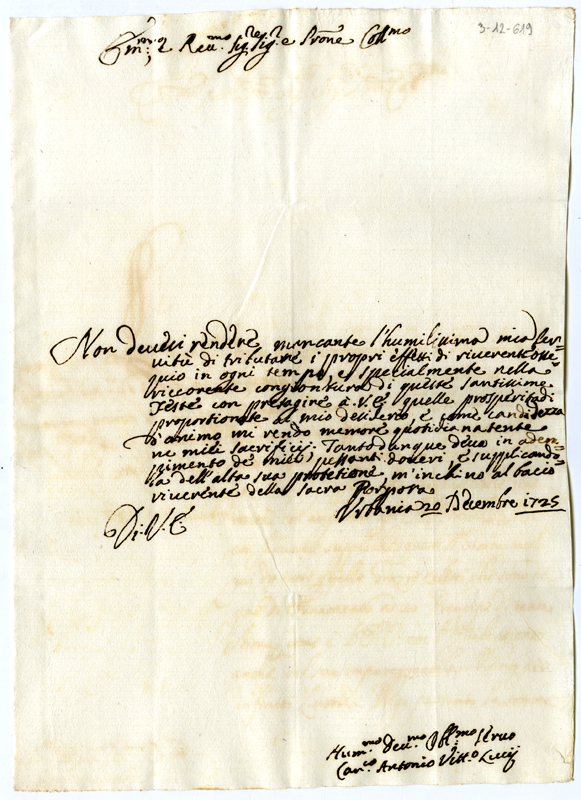 3-12-619
Em.mo, e Rev.mo Sig.re Sig.re e Prone Coll.mo
Non devesi rendere mancante l'humilissima mia ser=
vitù di tributare i propri effetti di riverente osse=
quio in ogni tempo, e spetialmente nella
riccorente congiontura di queste santissime
Feste con presagire à V.E. quelle prosperità
proportionate al mio desiderio, e come candidezza
d'animo mi rendo memore quotidianatente
ne miei sacrificij; Tanto dunque devo in adem=
pimento de miei doveri, e supplicando=
la dell'alta sua protetione, m'inchino al bacio
riverente della sacra Porpora
Urbania 20 Decembre 1725
Di V.E.
Hum.mo Dev.mo Obl.mo Servo
Can.co Antonio Vitt.o Lucij